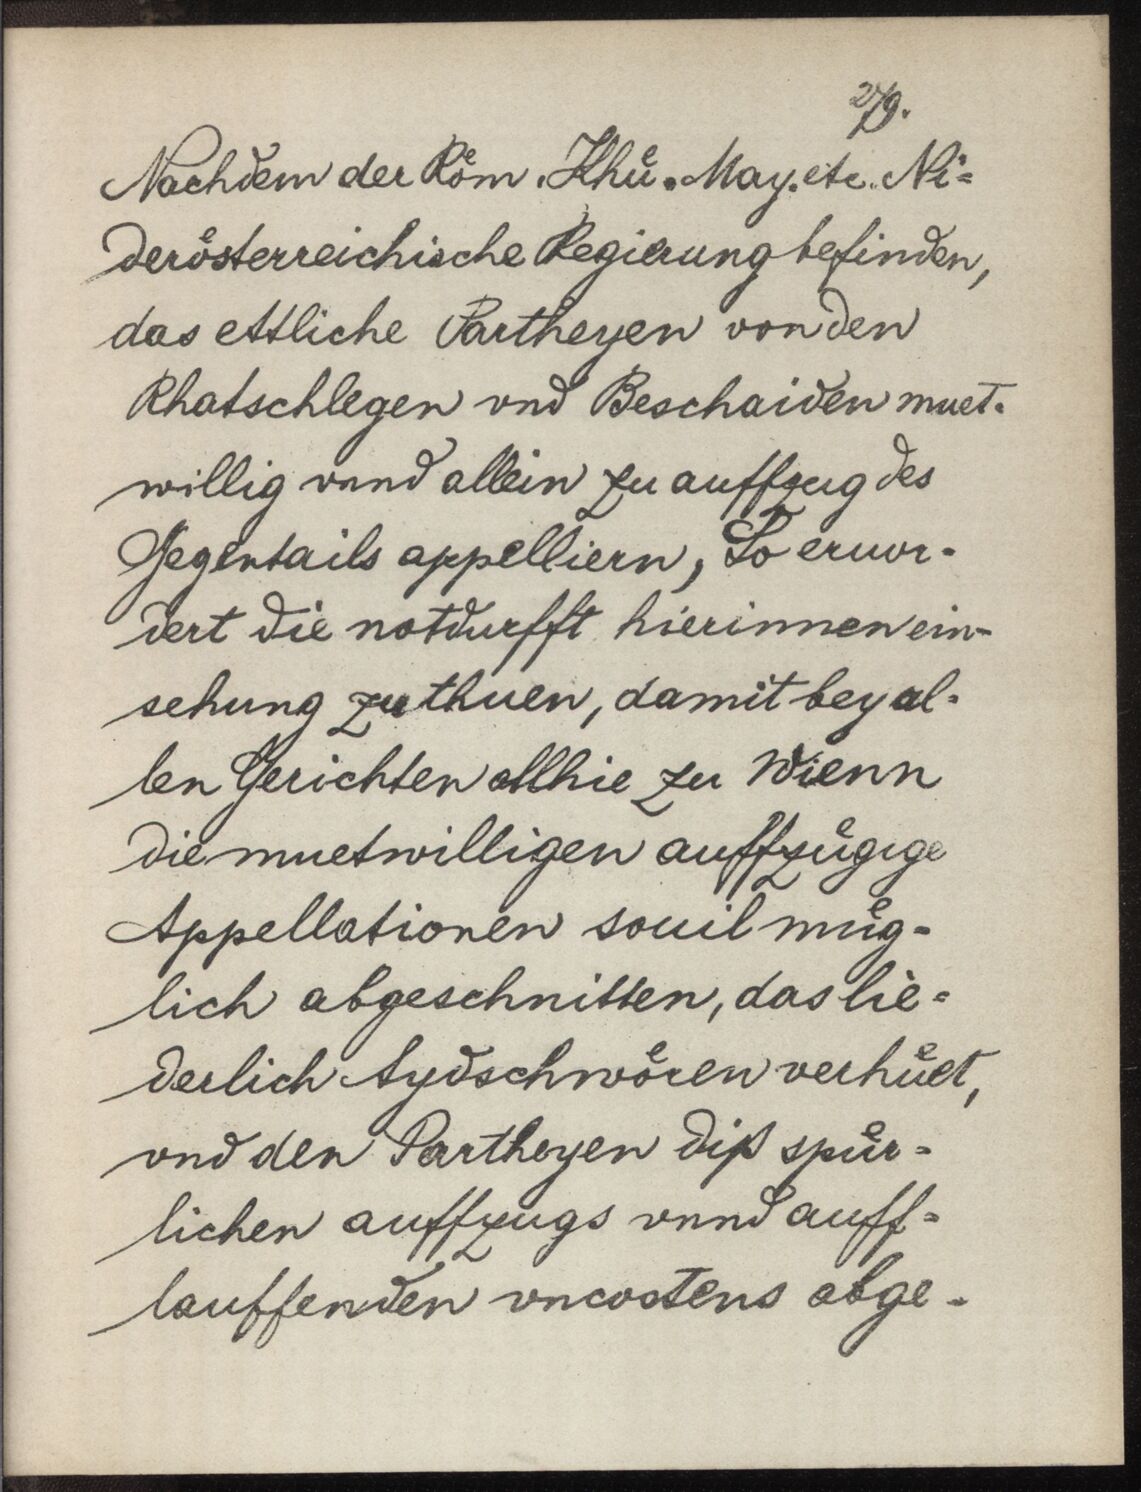 279.
Nachdem der Röm. Khü. May. etc. Ni=
derösterreichische Regierung befinden,
das ettliche Partheyen von den
Rhatschlegen vnd Beschaiden muet=
willig vnnd allein zu auffzug des
Gegentails appelliern, So eruor=
dert die notdurfft hierinnen ein=
sehung zu thuen, damit bey al=
len Gerichten allhie zu Wienn
die muetwilligen auffzügige
Appellationen souil müg=
lich abgeschnitten, das lie=
derlich Aydschwören verhüet,
vnd den Partheyen diß spür=
lichen auffzugs vnnd auff=
lauffenden vncostens abge=